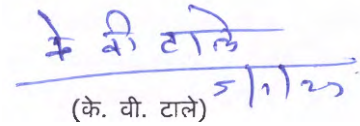 के वी टाले
5/1/23
(के. वी. टाले)